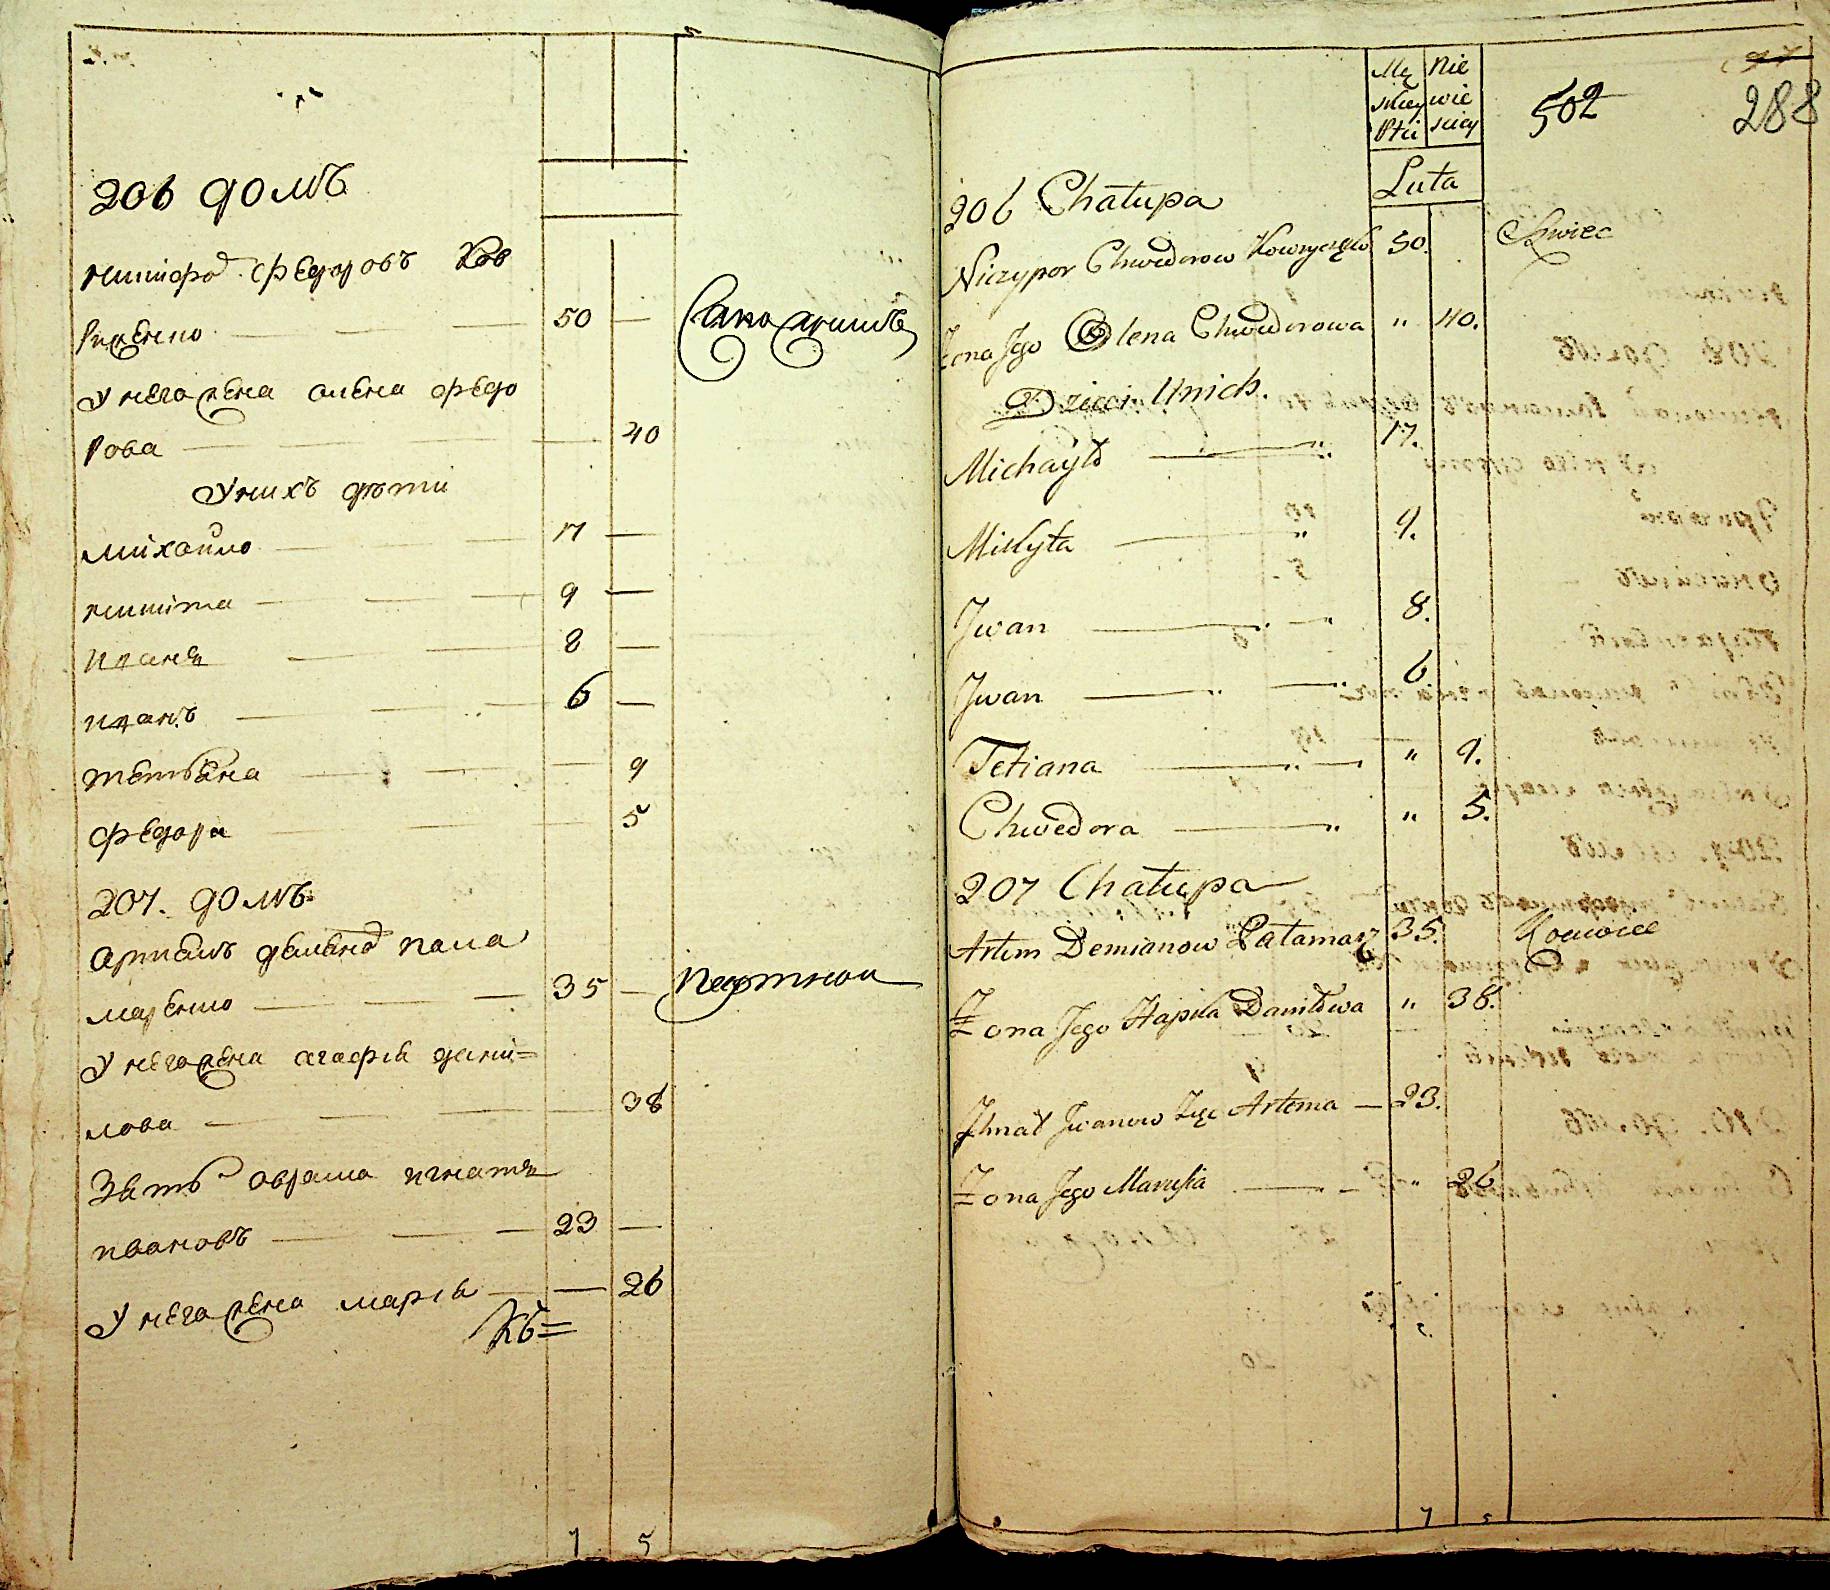 206 домъ
никифоръ федоровъ Ков
риженко 50
У него жена олена федо
рова 40
У нихъ дѣти
михайло 17
никита 9
иванъ 8
иванъ 6
тетьяна 9
федора 5
207. домъ
артемъ демьяновъ пала
маренко 35
У него жена агафiя дани=
лова 38
Зять игнатъ
ивановъ 23
У него жена марiя 26
7 5
Mę Nie
skiey wie
Płci sciey
502
288
Luta
206 Chałupa
Niczypor Chwedorow 50. Szwiec
Żona Jego Olena Chwedorowa " 40.
Dzieci Unich.
Michayło 17.
Mikyta 9.
Jwan 8.
Jwan 6
Tetiana " 9.
Chwedora " 5.
207 Chałupa
Artem Demianow Pałamarz 35.
Żona Jego Hapka Daniłowa " 38.
Jhnat Jwanow Zięc Artema 23.
Żona Jego Marusia " 26
7 5